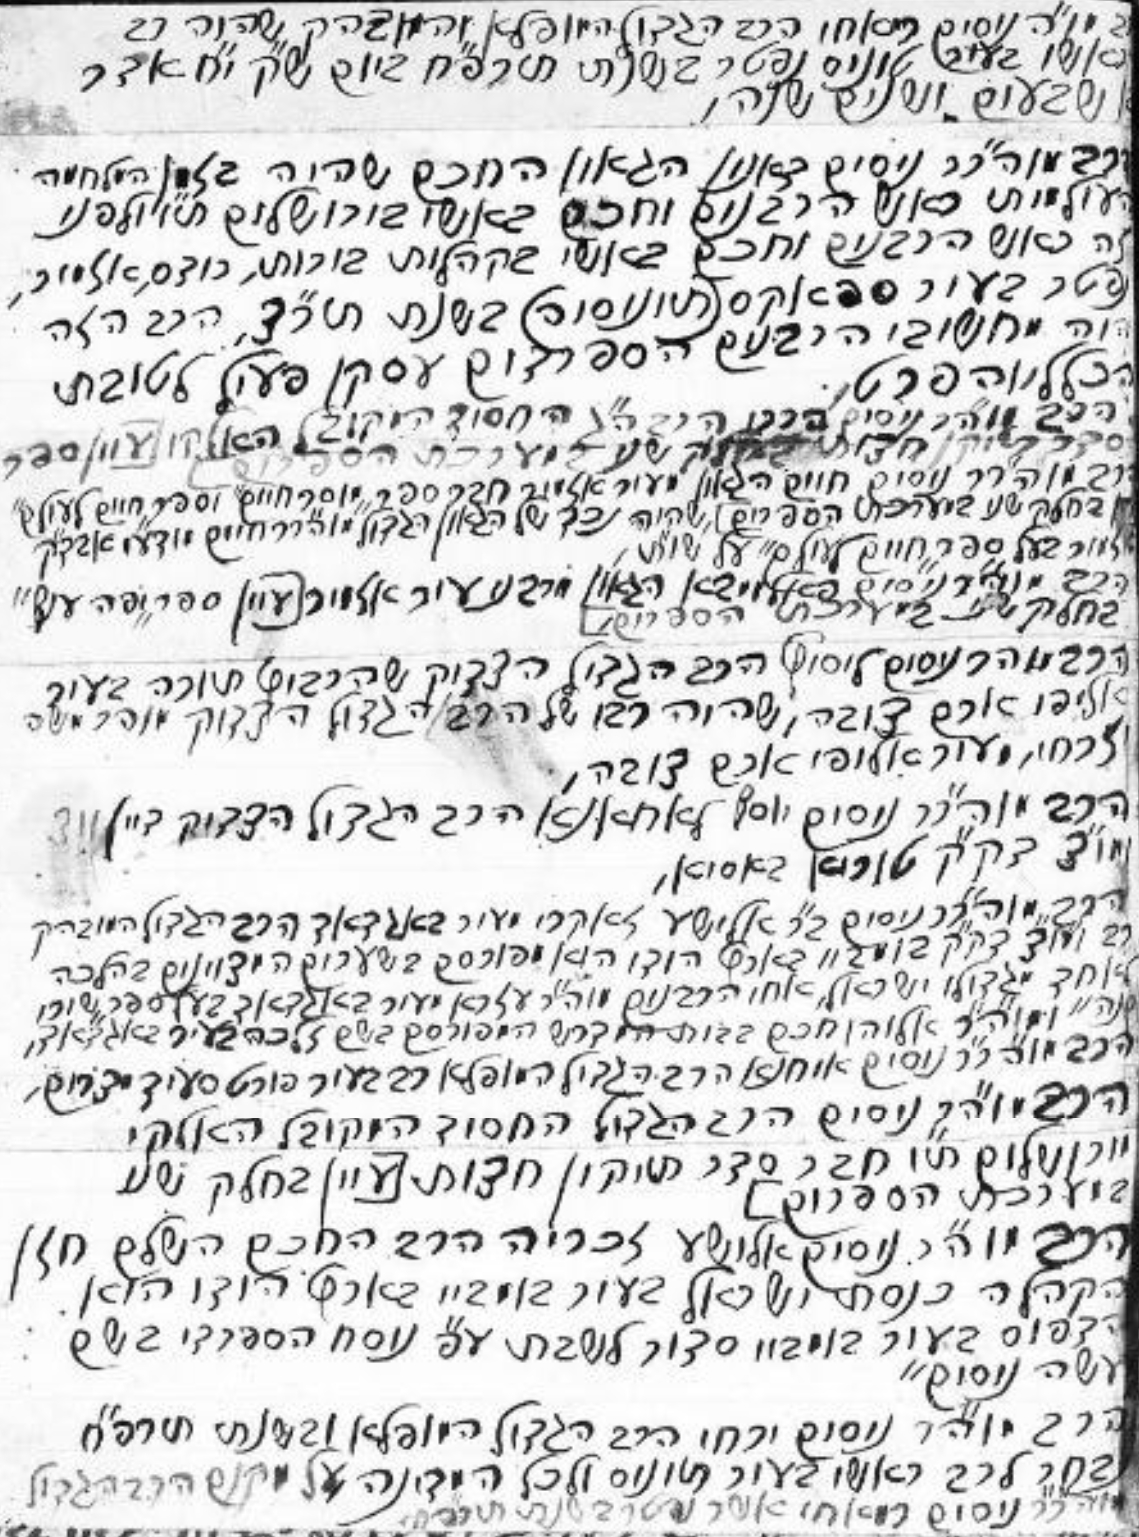 מו"ה ניסים הרב הגדול המופלא והמובהק שהיה רב
ראשי בעיר טוניס נפטר בשנת תרפ"ח ביום ש"ק י"ח אדר
שבעים ושנים שנה,
הרב מוה"רר ניסים דאנון הגאון החכם שהיה בזמן המלחמה
העולמית ראש הרבנים וחכם באשי בירושלים ת"ו ולפני
זה ראש הרבנים וחכם באשי בקהלות בירות, רודס, אזמיר,
נפטר בעיר ספאקס (תוניסיה) בשנת תר"צ, הרב הזה
היה מחשובי הרבנים הספרדים עסקן פעיל לטובת
הכלל והפרט,
הרב מוה"ר ניסים הרב ה"ג החסיד המקובל האלקי [עיין ספר
סדר תיקון חצות בחלק שני במערכת הספרים]
הרב מוה"רר ניסים חיים הגאון מעיר אזמיר חבר ספר "מוסר חיים" וספר חיים לעולם"
בחלק שני במערכת הספרים], שהיה נכד של הגאון הגדול מוה"רר חיים מודעי אבד"ק
אזמיר בעל ספר "חיים לעולם" על שו"ת,
הרב מוה"רר ניסים הגאון מרבני עיר אזמיר [עיין ספר יפה ענף"
בחלק שני במערכת הספרים]
הרב מוהר ניסים ליסיטי הרב הגדול הצדיק שהרביץ תורה בעיר
אליפו ארם צובה, שהיה רבו של הרב הגדול הצדיק מוהר משה
מזרחי, מעיר אליפו ארם צובה,
הרב מוה"רר ניסים יוסף הרב הגדול הצדיק דיין ויצ
ומו"צ בק"ק טוריא באסיא,
הרב מוה"רר ניסים ב"ר אלישע מעיר באגדאד הרב הגדול המובהק
רב ומו"צ דק"ק בומביי בארץ הודו הוא מפורסם בשערים המצויינים בהלכה
לאחד מגדולי ישראל, אחי הרבנים מוה"ר עזרא מעיר באגדאד בעל ספר שירי
ומוה"ר אליהו חכם בבית המדרש המפורסם בשם זלכה בעיר באגדאד,
הרב מוה"רר ניסים אוחנא הרב הגדול המופלא רב בעיר פורט סעיד מצרים,
הרב מוה"ר ניסים הרב הגדול החסיד המקובל האלקי
מירושלים ת"ו חבר סדר תיקון חצות [עיין בחלק שני
במערכת הספרים]
הרב מוה"ר ניסים אלישע זכריה הרב החכם השלם חזן
הקהלה כנסת ישראל בעיר בומביי בארץ הודו הוא
הדפיס בעיר בומביי סדור לשבת ע"פ נוסח הספרדי בשם
עשה ניסים"
הרב מוה"ר ניסים ירחי הרב הגדול המופלא ובשנת תרפ"ח
נבחר לרב ראשי בעיר תוניס ולכל המדינה על מקום הרב הגדול
מוה"רר ניסים אשר נפטר בשנת תרפ"ח